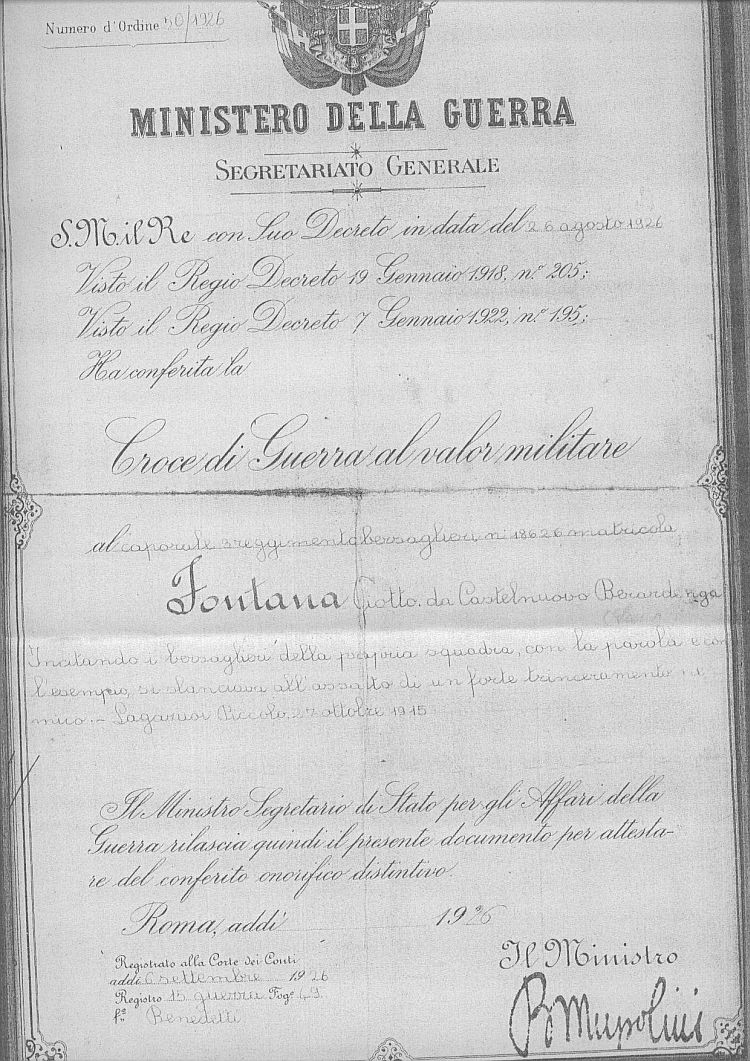 Numero d'Ordine 50/1926
MINISTERO DELLA GUERRA
SEGRETARIATO GENERALE
S. M. il Re con Suo Decreto in data del 26 agosto 1926
Visto il Regio Decreto 19 Gennaio 1918, n.º 205;
Visto il Regio Decreto 7 Gennaio 1922, n.º 195;
Ha conferita la
Croce di Guerra al valor militare
al caporale 3 reggimento bersaglieri n. 18626 matricola
Fontana Giotto da Castelnuovo Berardenga
Incitando i bersaglieri della propria squadra, con la parola e con
l'esempio, si slanciava all'assalto di un forte trinceramento ne
mico. - Lagazuoi Piccolo, 27 ottobre 1915
Il Ministro Segretario di Stato per gli Affari della
Guerra rilascia quindi il presente documento per attesta-
re del conferito onorifico distintivo.
Roma, addì 1926
Registrato alla Corte dei Conti
addì 6 settembre 1926
Registro 15 guerra Fog.º 49
fº Benedetti
Il Ministro
B Mussolini